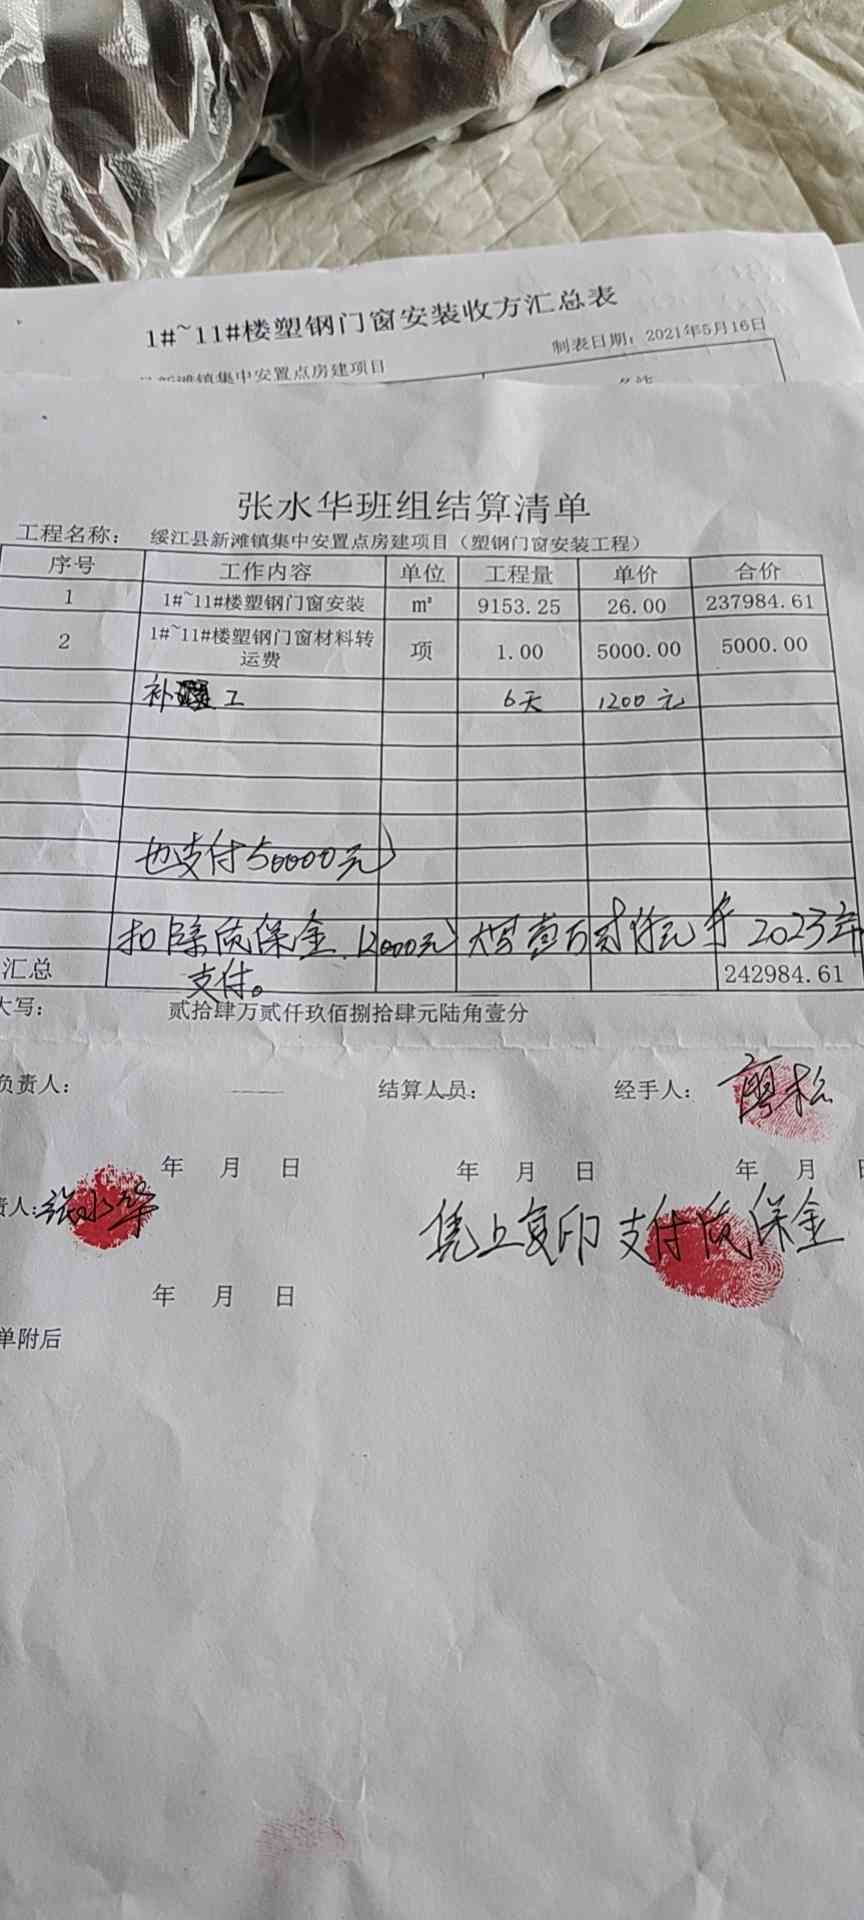 1#~11#楼塑钢门窗安装收方汇总表
制表日期：2021年5月16日
新滩镇集中安置点房建项目
备注
张水华班组结算清单
工程名称： 绥江县新滩镇集中安置点房建项目（塑钢门窗安装工程）
序号 工作内容 单位 工程量 单价 合价
1 1#~11#楼塑钢门窗安装 m² 9153.25 26.00 237984.61
2 1#~11#楼塑钢门窗材料转运费 项 1.00 5000.00 5000.00
补 工 6天 1200元
也支付50000元
扣除质保金12000元 大写壹万贰仟元 于2023年
支付。
汇总 242984.61
大写： 贰拾肆万贰仟玖佰捌拾肆元陆角壹分
负责人： 结算人员： 经手人： 廖松
年 月 日 年 月 日 年 月 日
责人： 张水华
凭上复印支付质保金
年 月 日
单附后